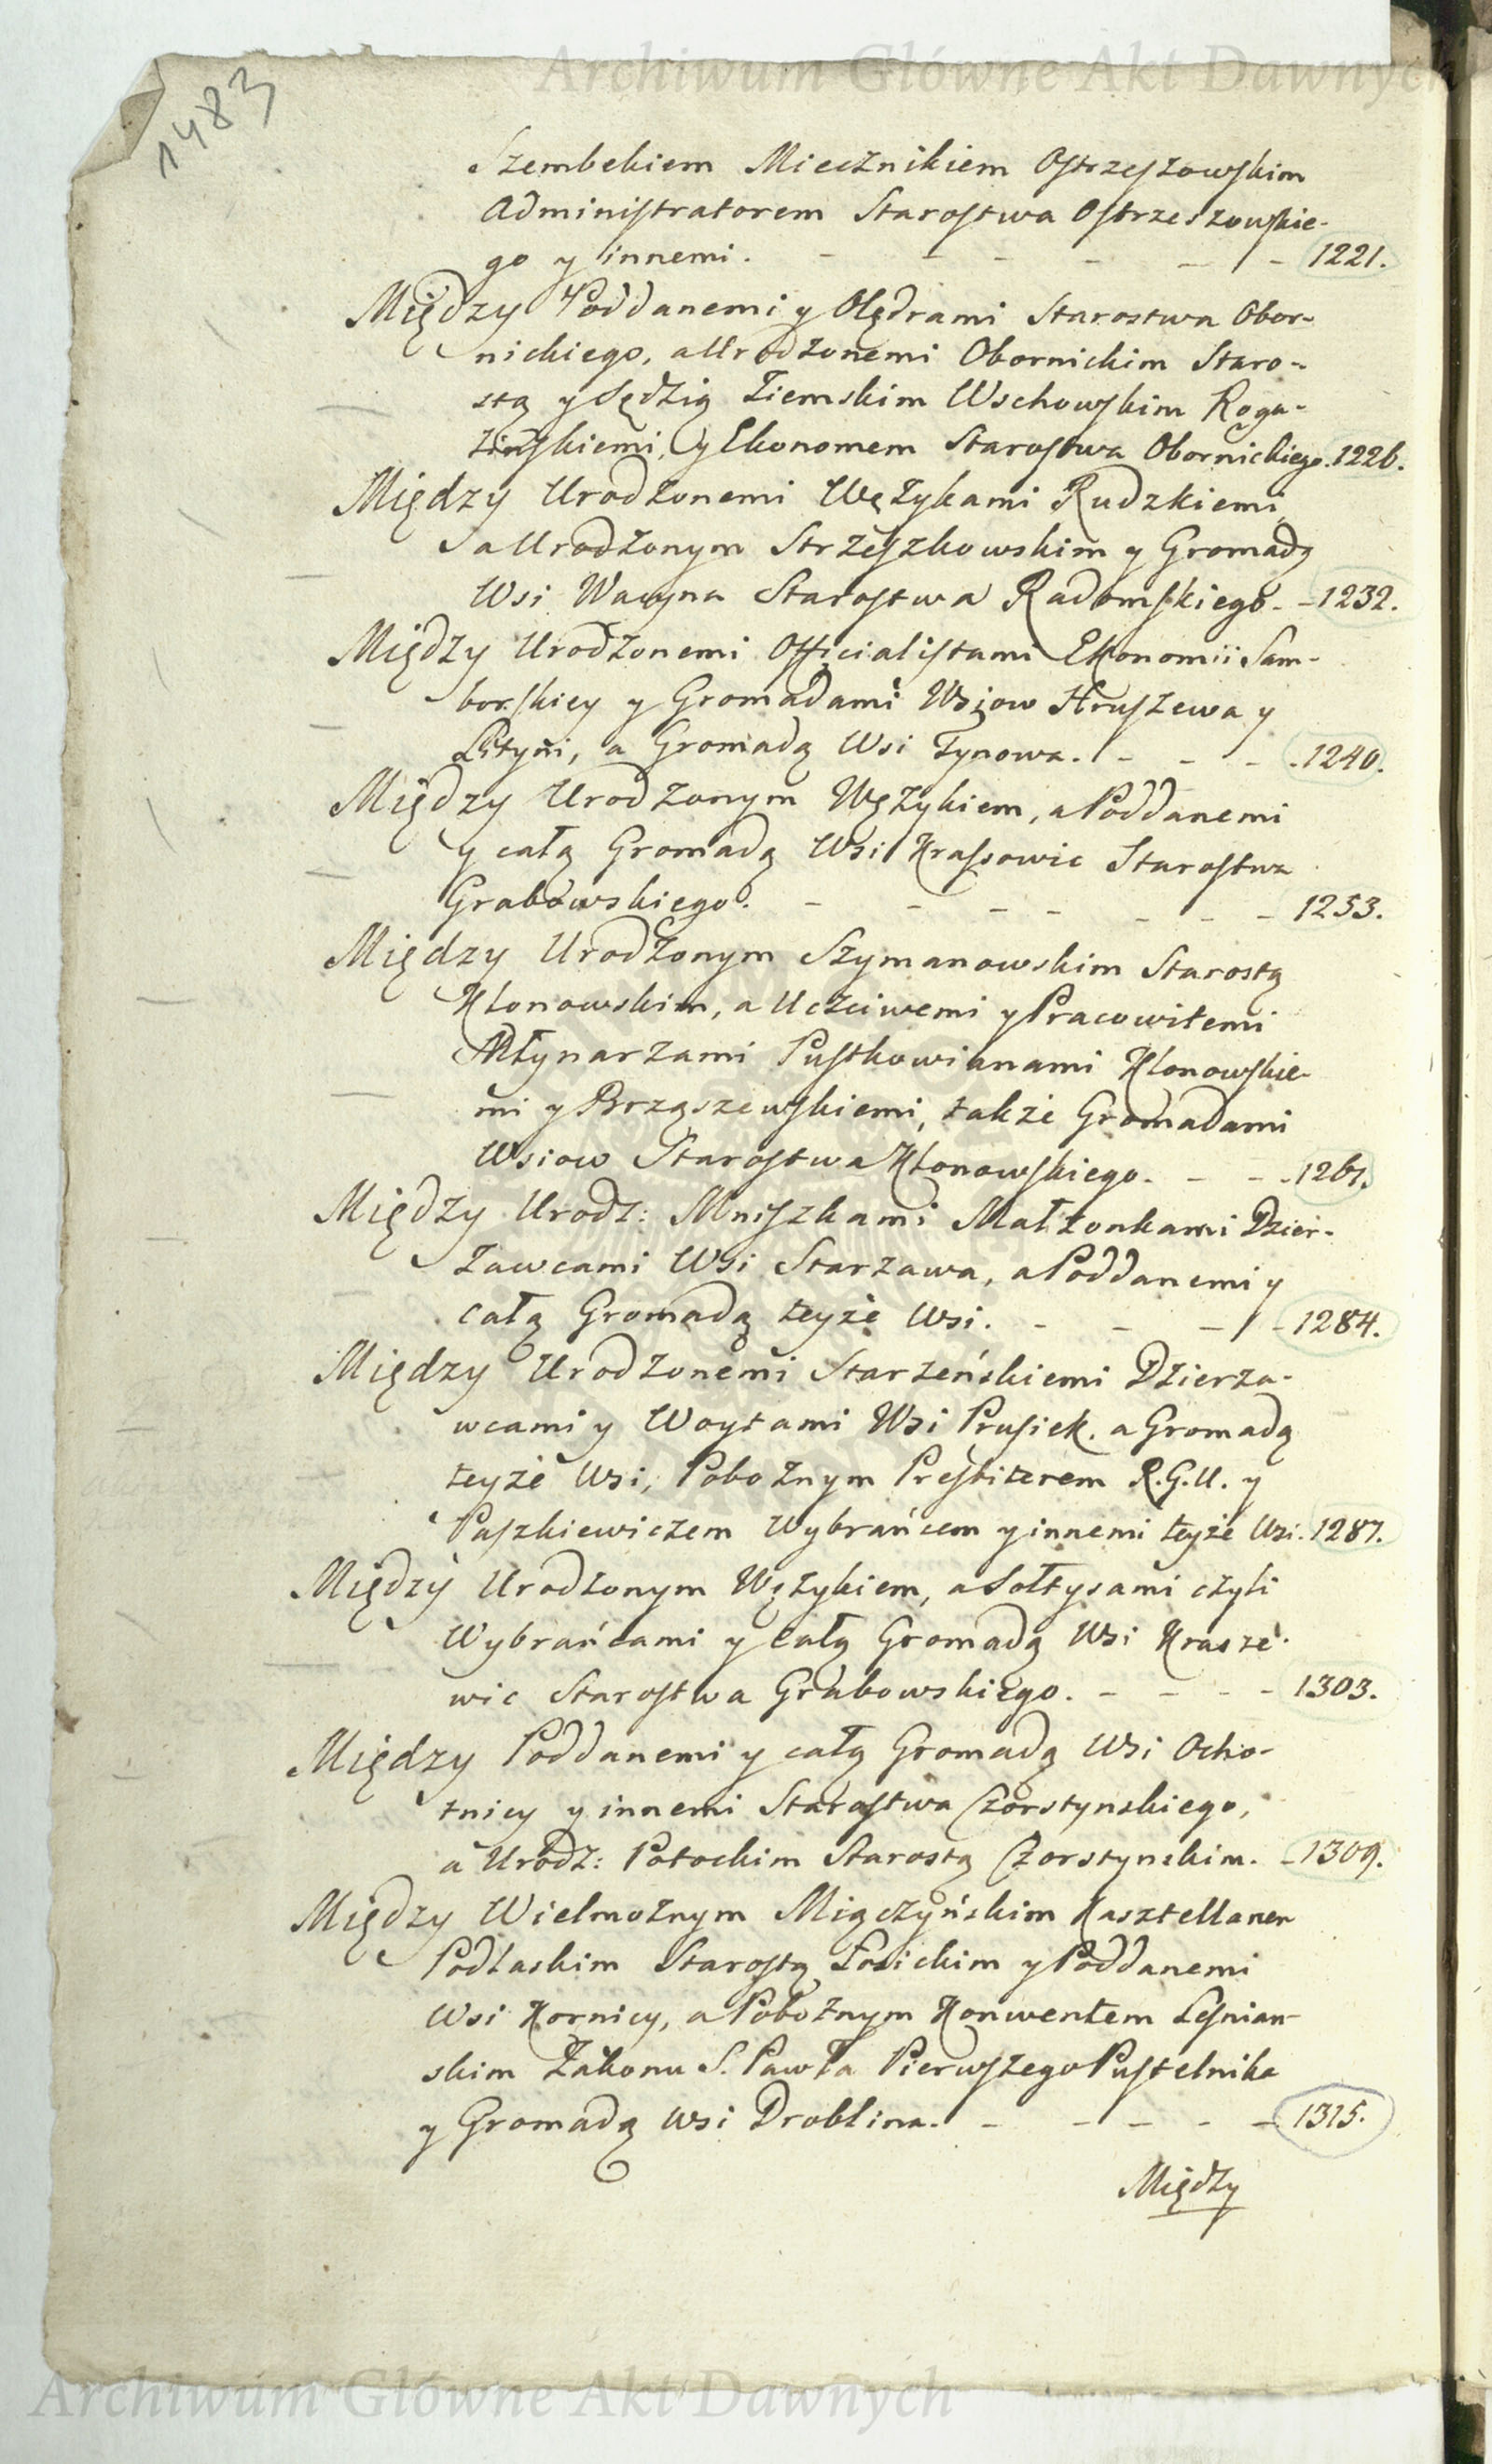 Archiwum Główne Akt Dawnych
1483
Szembekiem Miecznikiem Ostrzeszowskim
Administratorem Starostwa Ostrzeszowskie-
go y innemi. - - - - - - 1221.
Między Poddanemi y Olędrami Starostwa Obor-
nickiego, a Urodzonemi Obornickim Staro-
stą y Sędzią Ziemskim Wschowskim Roga-
lińskiemi, y Ekonomem Starostwa Obornickiego. 1226.
Między Urodzonemi Wężykami Rudzkiemi
a Urodzonym Strzeszkowskim y Gromadą
Wsi Wacyna Starostwa Radomskiego. - 1232.
Między Urodzonemi Officialistami Ekonomii Sam-
borskiey y Gromadami Wsiow Hruszewa y
Lityni, a Gromadą Wsi Tynowa. - - - 1240.
Między Urodzonym Wężykiem, a Poddanemi
y całą Gromadą Wsi Krassowic Starostwa
Grabowskiego. - - - - - - - 1253.
Między Urodzonym Szymanowskim Starostą
Klonowskim, a Uczciwemi y Pracowitemi
Młynarzami Pustkowianami Klonowskie-
mi y Brząszewskiemi, także Gromadami
Wsiow Starostwa Klonowskiego. - - - 1261.
Między Urodz: Mniszkami Małżonkami Dzier-
żawcami Wsi Starzawa, a Poddanemi y
całą Gromadą teyże Wsi. - - - - 1284.
Między Urodzonemi Starzeńskiemi Dzierża-
wcami y Woytami Wsi Prusiek, a Gromadą
teyże Wsi, Pobożnym Presbiterem R.G.U. y
Paszkiewiczem Wybrańcem y innemi teyże Wsi. 1287.
Między Urodzonym Wężykiem, a Sołtysami czyli
Wybrańcami y całą Gromadą Wsi Krasze-
wic Starostwa Grabowskiego. - - - - 1303.
Między Poddanemi y całą Gromadą Wsi Ocho-
tnicy y innemi Starostwa Czorstynskiego,
a Urodz: Potockim Starostą Czorstynskim. - 1309.
Między Wielmożnym Miączyńskim Kasztellanem
Podlaskim Starostą Łosickim y Poddanemi
Wsi Kornicy, a Pobożnym Konwentem Leśnian-
skim Zakonu S. Pawła Pierwszego Pustelnika
y Gromadą Wsi Droblina. - - - - - 1315.
Między
Archiwum Główne Akt Dawnych